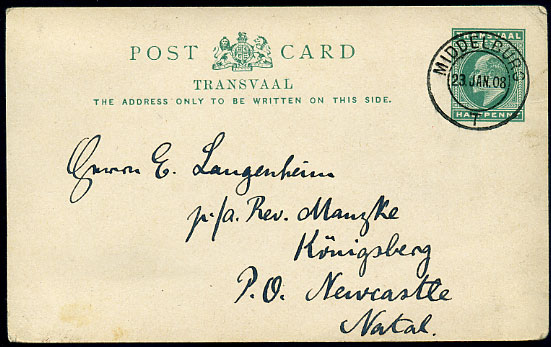 POST CARD
TRANSVAAL
THE ADDRESS ONLY TO BE WRITTEN ON THIS SIDE.
TRANSVAAL
HALFPENNY
MIDDELBURG
23 JAN. 08
T
Herrn E. Langenheim
p/a. Rev. Manzke
Königsberg
P.O. Newcastle
Natal.